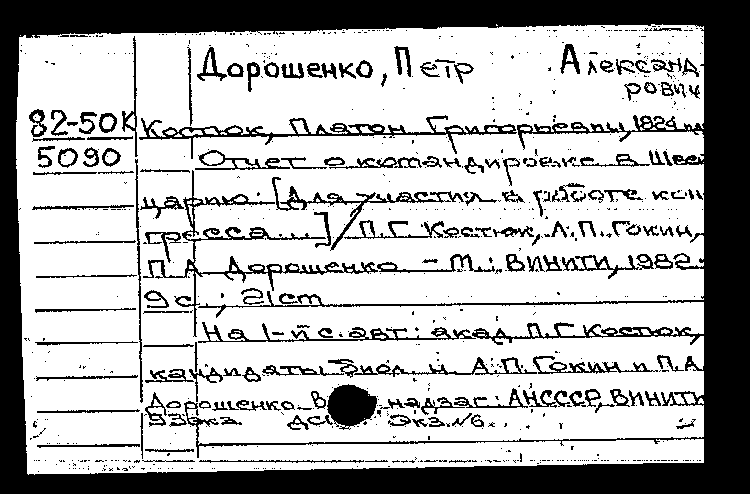 Дорошенко, Петр Александ-
рович
82-50К Костюк, Платон Григорьевич, 1924
5090 Отчет о командировке в Швей
царию: [Для участия в работе кон
гресса...] / П.Г. Костюк, А.П. Гокин,
П.А. Дорошенко. - М.: ВИНИТИ, 1982.
9 с.; 21 cm
На 1-й с. авт.: акад. П.Г. Костюк,
кандидаты биол. н. А.П. Гокин и П.А.
Дорошенко. В надзаг: АНСССР, ВИНИТИ
экз. №6.